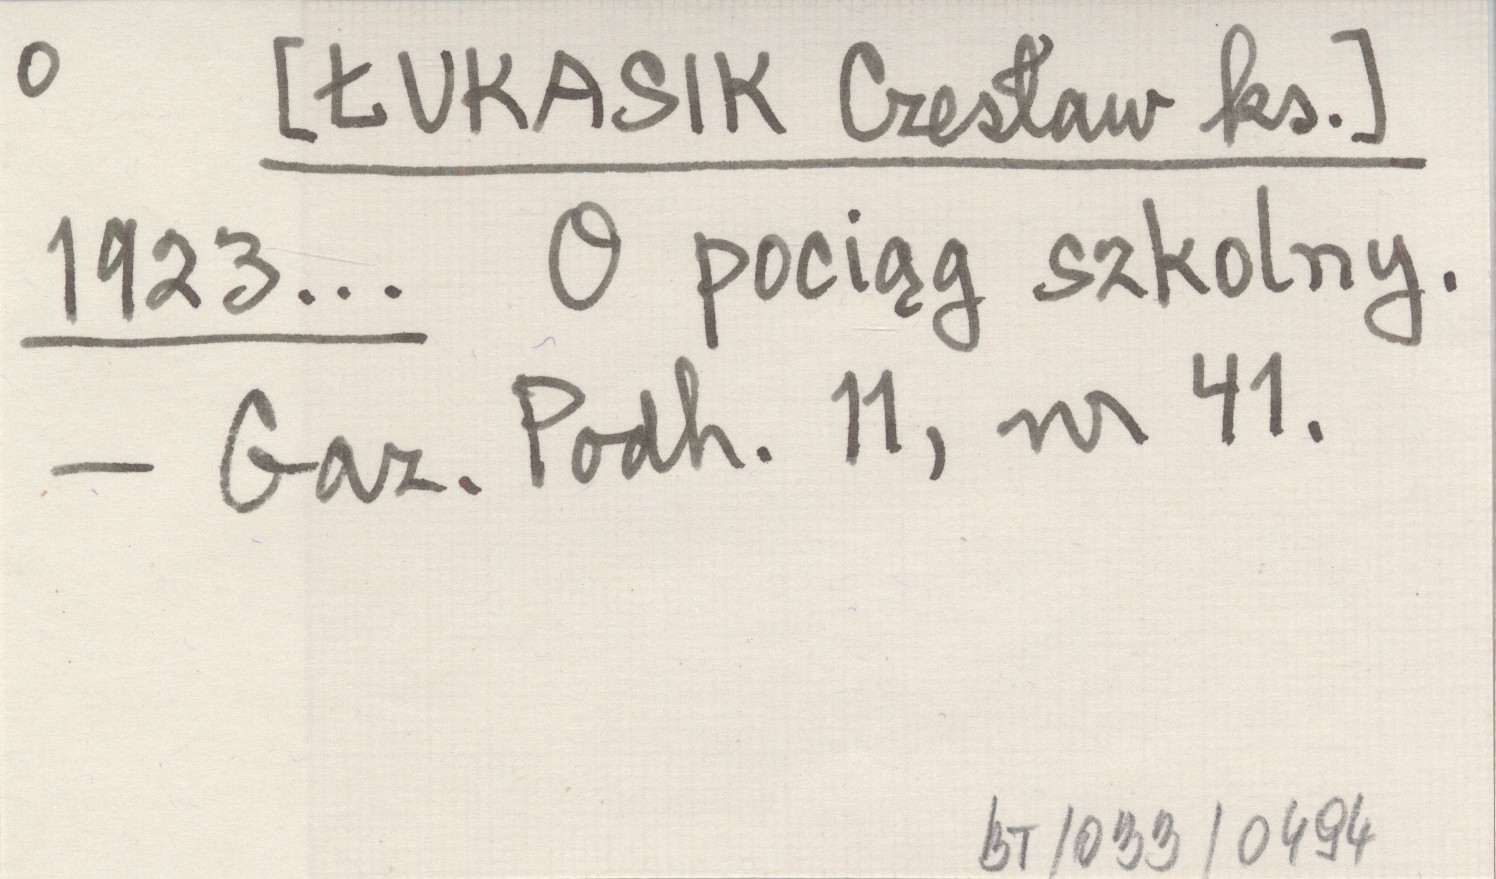 o [ŁUKASIK Czesław ks.]
1923... O pociąg szkolny.
— Gaz. Podh. 11, nr 41.
BT/033/0494